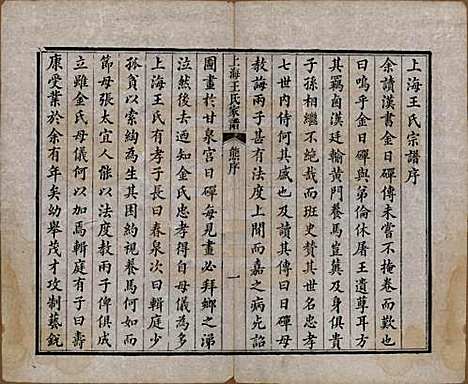 上海王氏宗譜序
余讀漢書金日磾傳未嘗不掩卷而歎也
曰嗚乎金日磾與弟倫休屠王遺尊耳方
其羈鹵漢廷輸黃門養馬豈蘄及身俱貴
子孫相繼不絶哉而班史贊其世名忠孝
七世内侍何其盛也及讀其傳曰日磾母
教誨兩子甚有法度上聞而嘉之病死詔
上海王氏家譜
熊序
一
圖畫於甘泉宮日磾每見畫必拜鄉之涕
泣然後去迺知金氏忠孝得自母教為多
上海王氏有孝子長曰春泉次曰輯庭少
孤貧以索綯為業其困約視養馬何如而
節母張太宜人能以法度教兩子俾俱成
立雖金氏母儀何以加焉輯庭有子曰壽
康受業於余有年矣幼舉茂才攻制藝鋭